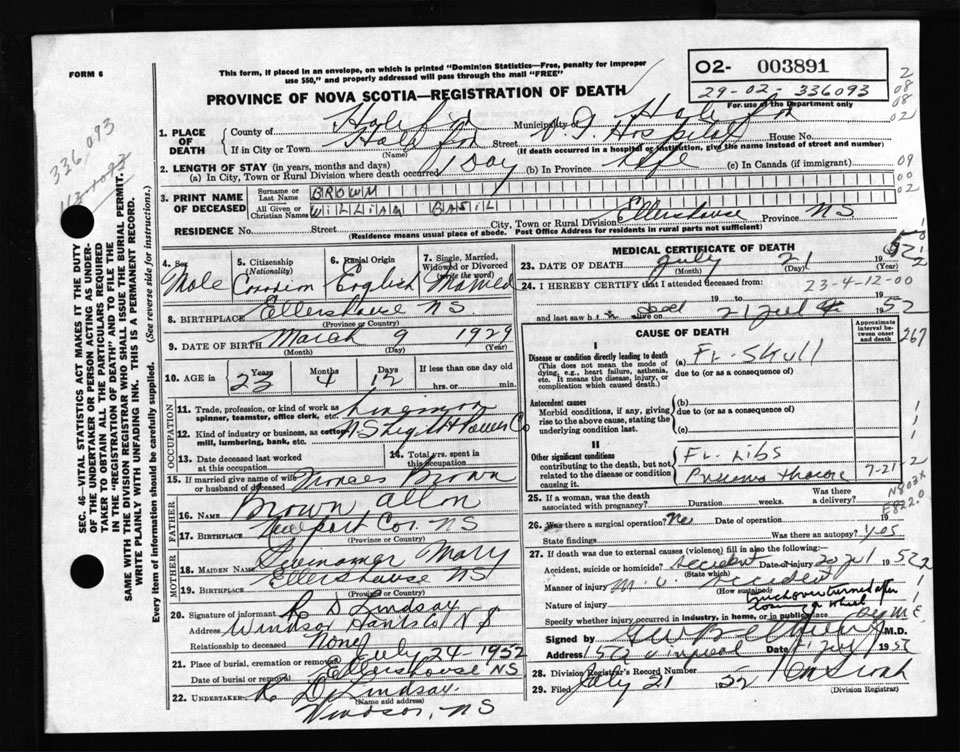 FORM 6
This form, if placed in an envelope, on which is printed "Dominion Statistics—Free, penalty for improper
use $50," and properly addressed will pass through the mail "FREE"
O2- 003891
29-02- 336093
For use of the Department only
PROVINCE OF NOVA SCOTIA—REGISTRATION OF DEATH
336093
2
08
08
02
1. PLACE OF DEATH
County of Halifax Municipality of Halifax
If in City or Town Halifax Street V.G. Hospital House No.
(Name) (If death occurred in a hospital or institution, give the name instead of street and number)
2. LENGTH OF STAY (in years, months and days)
(a) In City, Town or Rural Division where death occurred 1 Day (b) In Province Life (c) In Canada (if immigrant)
09
00
02
3. PRINT NAME OF DECEASED
Surname or Last Name BROWN
All Given or Christian Names WILLIAM BASIL
RESIDENCE No. Street City, Town or Rural Division Ellershouse Province NS
(Residence means usual place of abode. Post Office Address for residents in rural parts not sufficient)
4. Sex Male
5. Citizenship (Nationality) Canadian
6. Racial Origin English
7. Single, Married, Widowed or Divorced (Write the word) Married
8. BIRTHPLACE Ellershouse NS
(Province or Country)
9. DATE OF BIRTH March 9 1929
(Month) (Day) (Year)
10. AGE in Years 23 Months 4 Days 12 If less than one day hrs. or min.
OCCUPATION
11. Trade, profession, or kind of work as spinner, teamster, office clerk, etc. Lineman
12. Kind of industry or business, as cotton mill, lumbering, bank, etc. NS Light & Power Co
13. Date deceased last worked at this occupation
14. Total yrs. spent in this occupation
15. If married give name of wife or husband of deceased Brown
FATHER
16. NAME Brown
17. BIRTHPLACE Newport NS
(Province or Country)
MOTHER
18. MAIDEN NAME Swinamer Mary
19. BIRTHPLACE Ellershouse NS
(Province or Country)
20. Signature of informant R D Lindsay
Address Windsor Hants Co N S
Relationship to deceased None
21. Place of burial, cremation or removal Ellershouse NS
Date of burial or removal July 24-1952
22. UNDERTAKER R. D. Lindsay
(Name and address)
Windsor, NS
MEDICAL CERTIFICATE OF DEATH
23. DATE OF DEATH July 21 1952
(Month) (Day) (Year)
24. I HEREBY CERTIFY that I attended deceased from:
23-4-12-00
19 to 19
and last saw h alive on 21 Jul 1952
CAUSE OF DEATH
Approximate interval between onset and death
267
I
Disease or condition directly leading to death
(This does not mean the mode of dying, e.g., heart failure, asthenia, etc. It means the disease, injury, or complication which caused death.)
(a) Fr. Skull
due to (or as a consequence of)
Antecedent causes
Morbid conditions, if any, giving rise to the above cause, stating the underlying condition last.
(b)
due to (or as a consequence of)
(c)
II
Other significant conditions
contributing to the death, but not related to the disease or condition causing it.
Fr. Ribs
7-21-2
N803X
E8220
25. If a woman, was the death associated with pregnancy? Duration weeks. Was there a delivery?
26. Was there a surgical operation? No Date of operation
State findings Was there an autopsy? yes
27. If death was due to external causes (violence) fill in also the following:—
Accident, suicide or homicide? Accident Date of injury 20 Jul 1952
(State which)
Manner of injury M.V. Accident
(How sustained)
Nature of injury truck overturned after
losing a wheel
Specify whether injury occurred in industry, in home, or in public place
Signed by M.D.
Address 1952
28. Division Registrar's Record Number
29. Filed July 21 1952
(Division Registrar)
SEC. 46—VITAL STATISTICS ACT MAKES IT THE DUTY
OF THE UNDERTAKER OR PERSON ACTING AS UNDER-
TAKER TO OBTAIN ALL THE PARTICULARS REQUIRED
IN THE "REGISTRATION OF DEATH" AND TO FILE THE
SAME WITH THE DIVISION REGISTRAR WHO SHALL ISSUE THE BURIAL PERMIT.
WRITE PLAINLY WITH UNFADING INK. THIS IS A PERMANENT RECORD.
Every item of information should be carefully supplied. (See reverse side for instructions.)